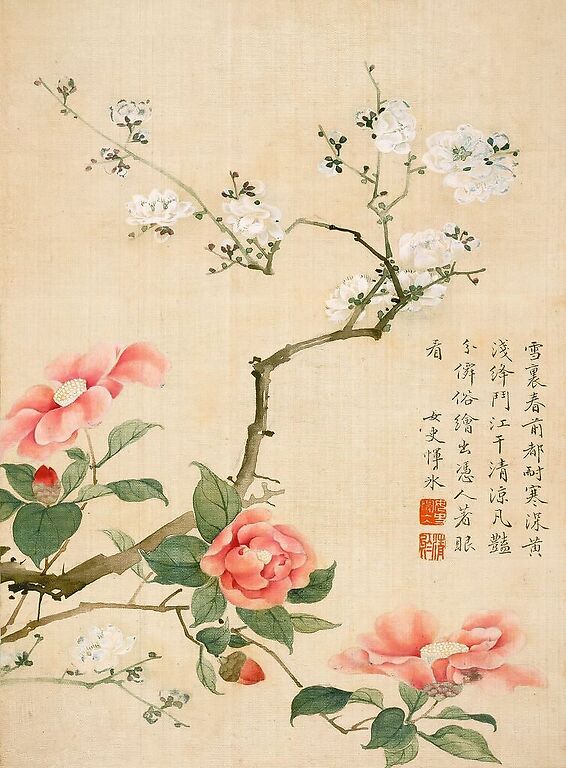 雪裏春前都耐寒深黄
淺絳鬥江干清涼凡豔
分僻俗繪出憑人著眼
看
女史惲冰